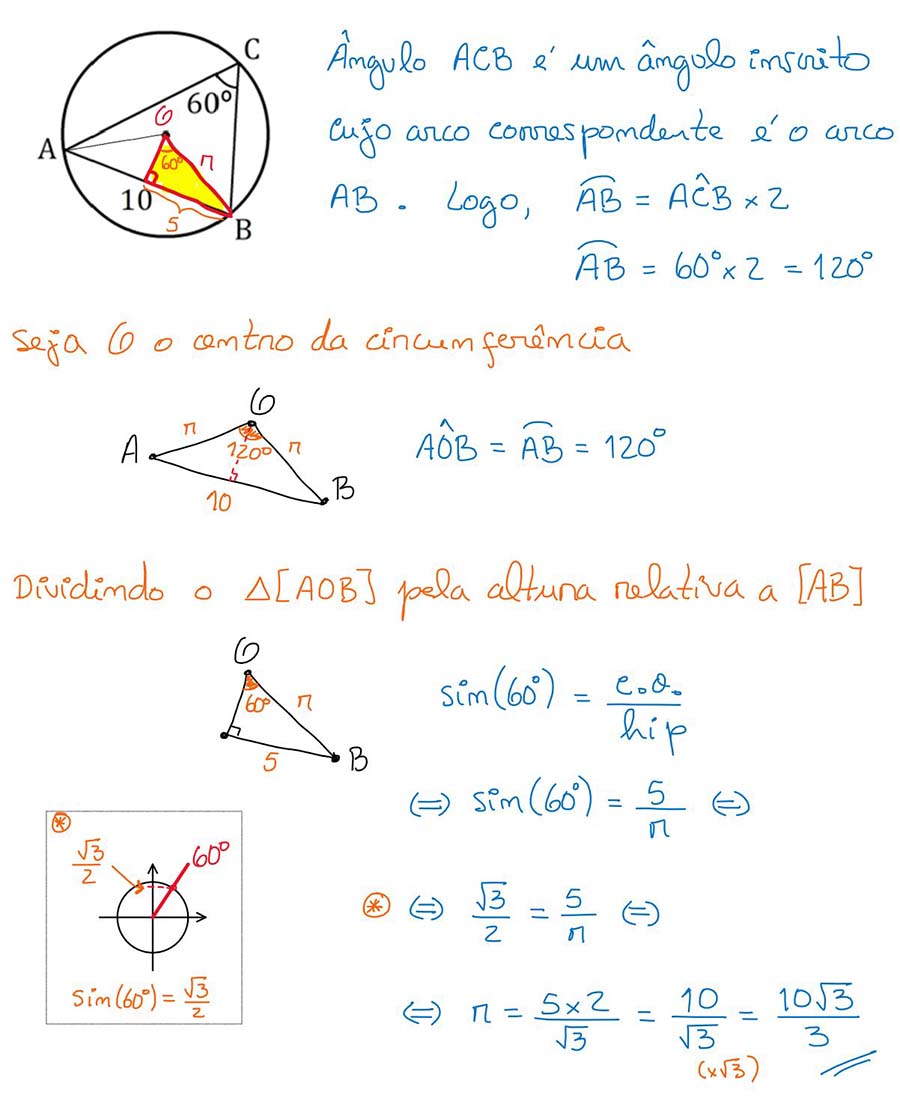 C
60º
O
A
60º
r
10
5
B
Ângulo ACB é um ângulo inscrito
cujo arco correspondente é o arco
AB. Logo, A͡B = AĈB × 2
A͡B = 60º × 2 = 120º
Seja O o centro da circunferência
O
r
A
120º
r
10
B
AÔB = A͡B = 120º
Dividindo o Δ[AOB] pela altura relativa a [AB]
O
60º
r
5
B
sin(60º) = c.o./hip
⇔ sin(60º) = 5/r ⇔
* ⇔ √3/2 = 5/r ⇔
⇔ r = 5×2/√3 = 10/√3 = 10√3/3
(×√3)
*
√3/2
60º
sin(60º) = √3/2